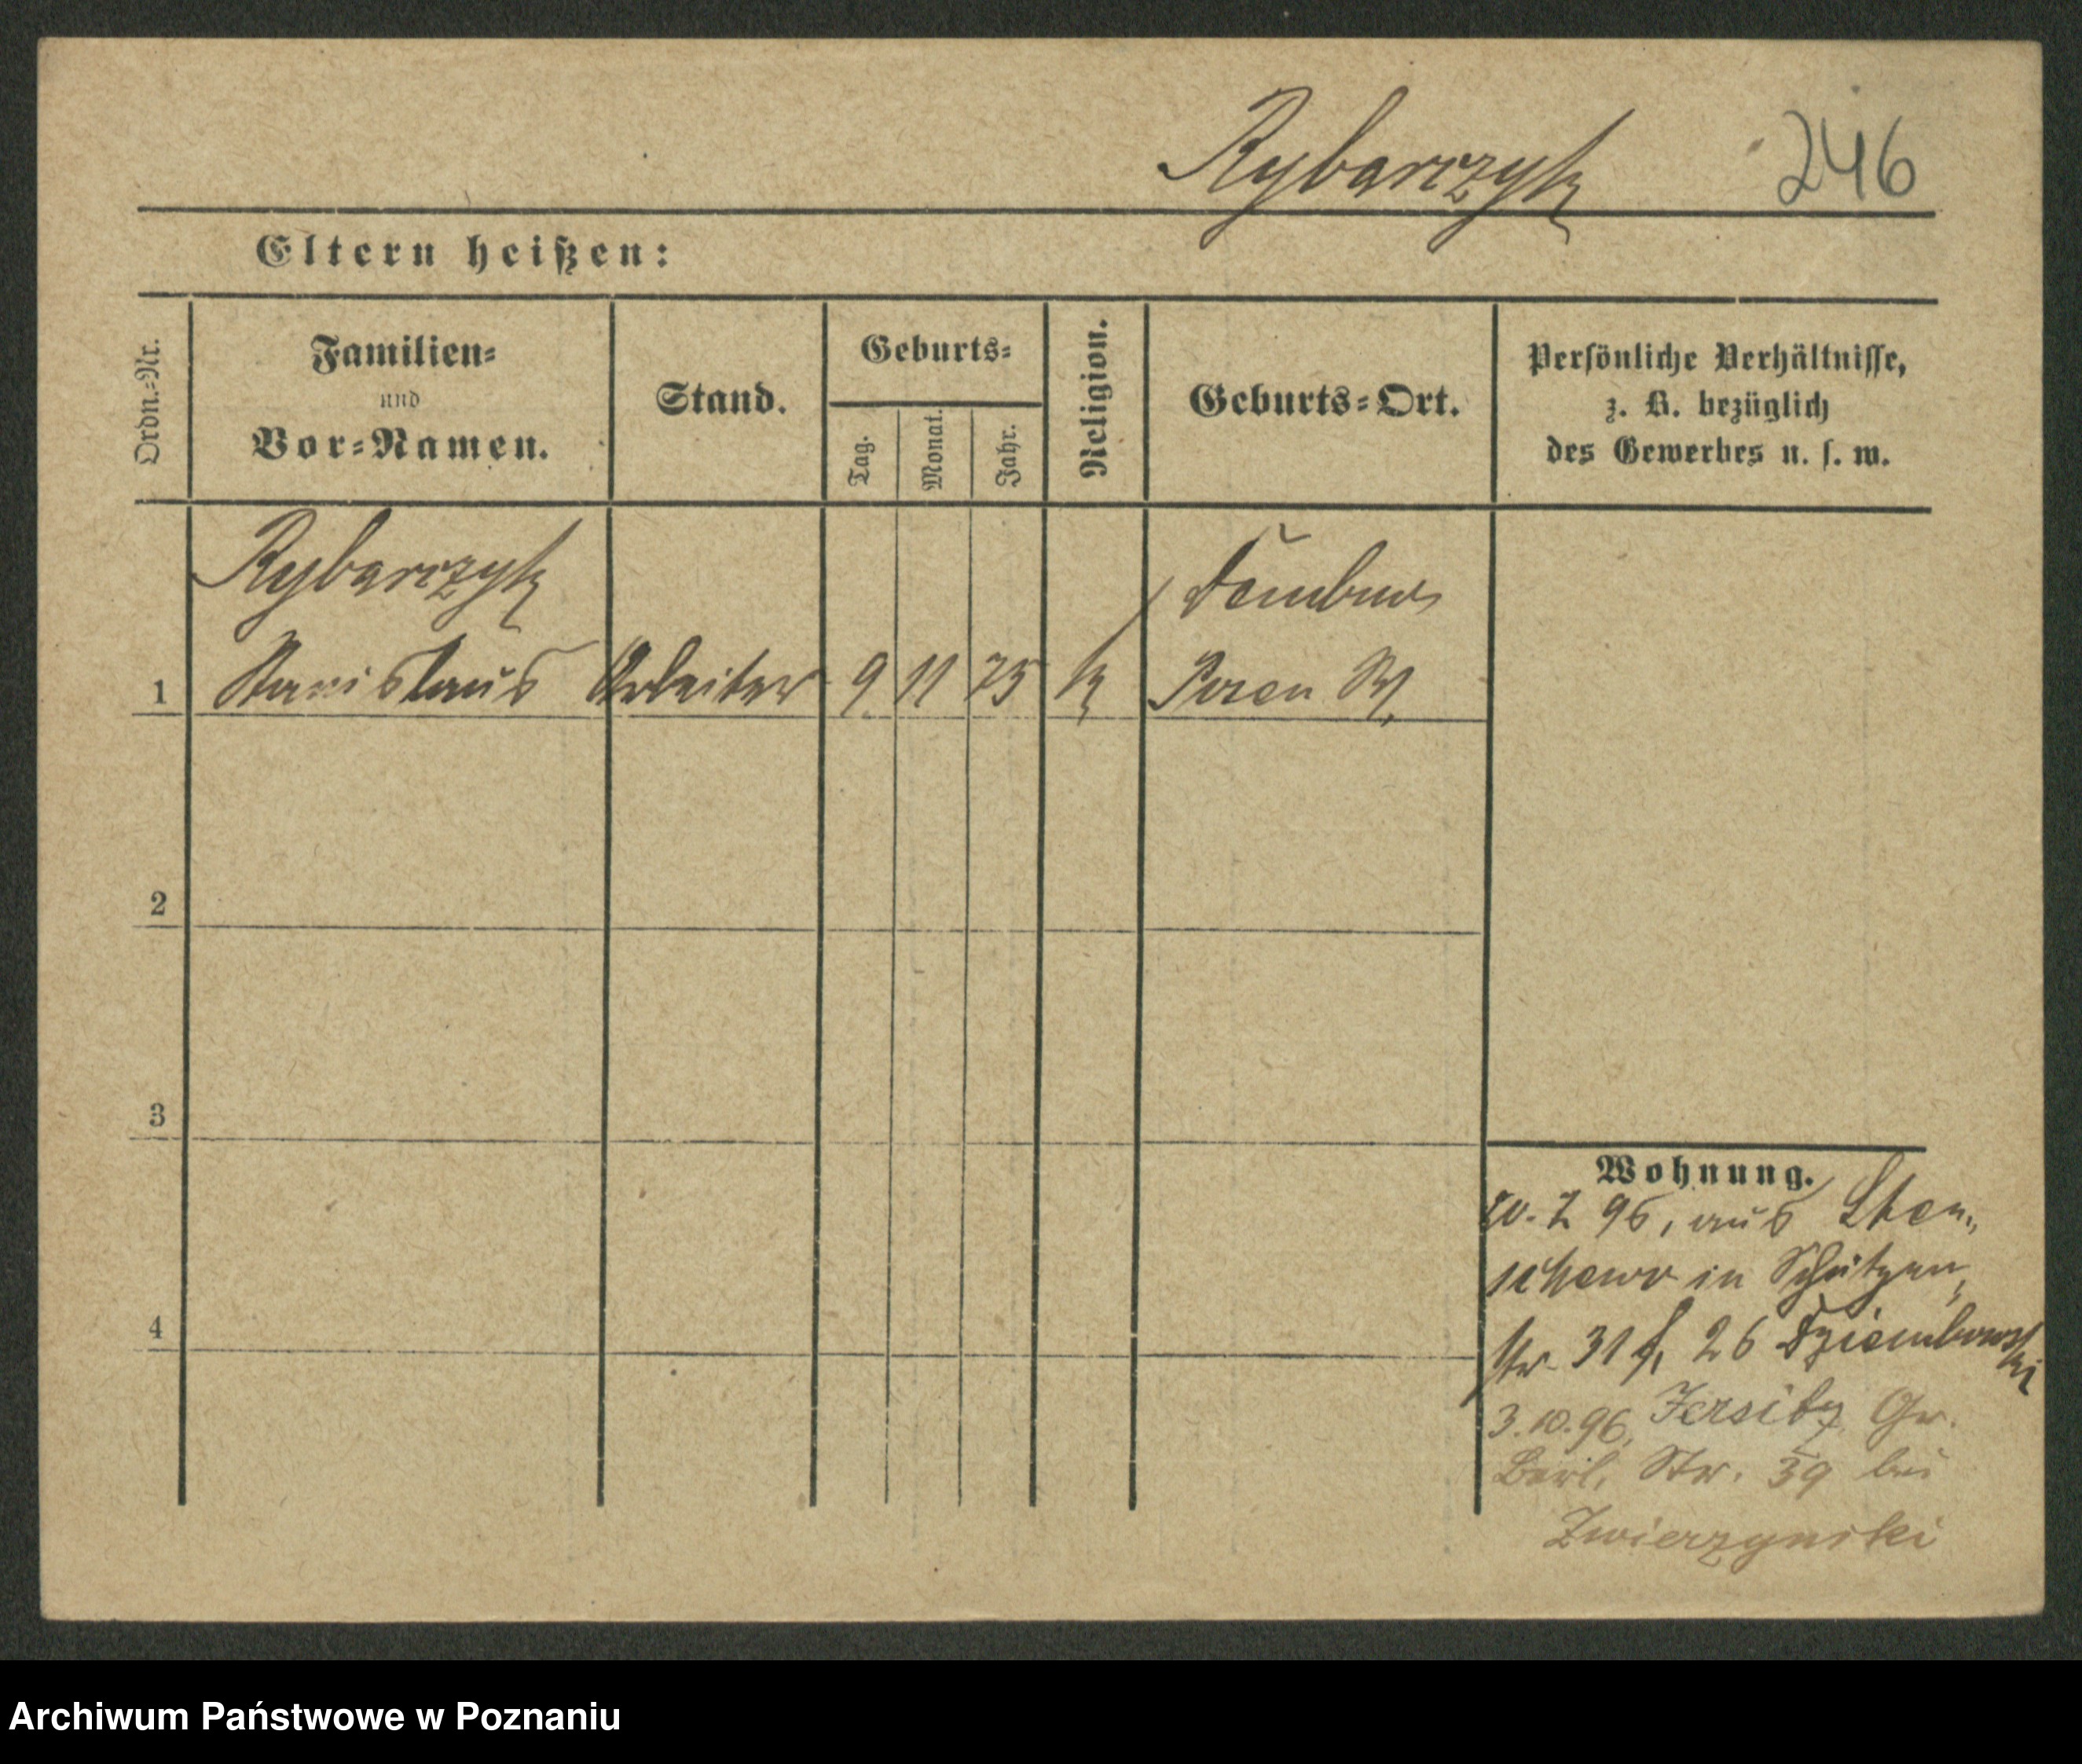 Rybarczyk 246
Eltern heißen:
Ordn.-Nr.
Familien-
und
Vor-Namen.
Stand.
Geburts-
Tag.
Monat.
Jahr.
Religion.
Geburts-Ort.
Persönliche Verhältnisse,
z. B. bezüglich
des Gewerbes u. s. w.
Rybarczyk
1 Stanislaus Arbeiter 9 11 75 k
Posen
2
3
4
Wohnung.
96, aus
in Schützen
str 31 26 Dziembowski
3.10.96, Jersitz Gr.
Berl. Str. 39 bei
Zwierzynski
Archiwum Państwowe w Poznaniu